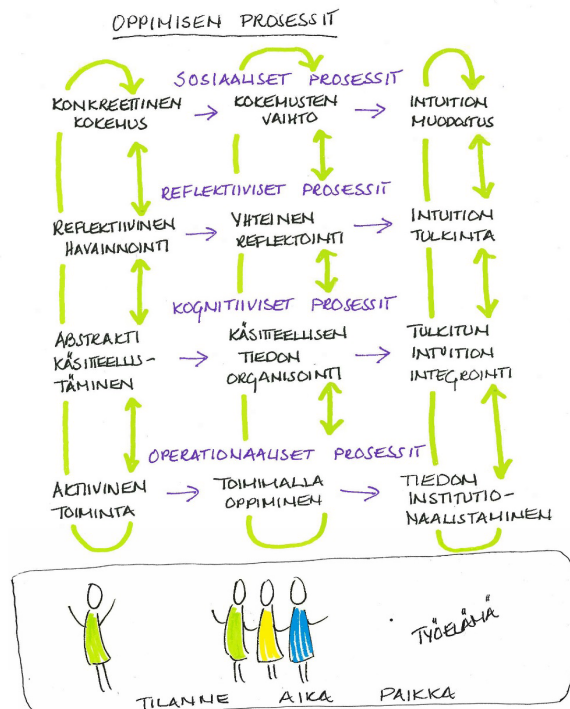 OPPIMISEN PROSESSIT
SOSIAALISET PROSESSIT
KONKREETTINEN
KOKEMUS
KOKEMUSTEN
VAIHTO
INTUITION
MUODOSTUS
REFLEKTIIVISET PROSESSIT
REFLEKTIIVINEN
HAVAINNOINTI
YHTEINEN
REFLEKTOINTI
INTUITION
TULKINTA
KOGNITIIVISET PROSESSIT
ABSTRAKTI
KÄSITTEELLIS-
TÄMINEN
KÄSITTEELLISEN
TIEDON
ORGANISOINTI
TULKITUN
INTUITION
INTEGROINTI
OPERATIONAALISET PROSESSIT
AKTIIVINEN
TOIMINTA
TOIMIMALLA
OPPIMINEN
TIEDON
INSTITUTIO-
NAALISTAMINEN
TYÖELÄMÄ
TILANNE AIKA PAIKKA